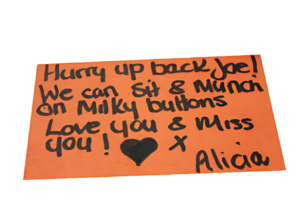 Hurry up back Joe!
We can Sit & Munch
on Milky buttons
Love you & Miss
you! ♥ x
Alicia